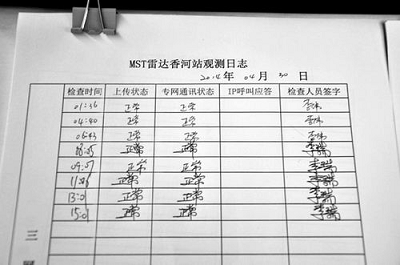 MST雷达香河站观测日志
2014年 04月 30日
检查时间 上传状态 专网通讯状态 IP呼叫应答 检查人员签字
01:16 正常 正常
04:40 正常 正常
06:43 正常 正常
08:05 正常 正常 李瑞
09:07 正常 正常 李瑞
11:08 正常 正常 李瑞
13:01 正常 正常 李瑞
15:01 正常 正常 李瑞
三